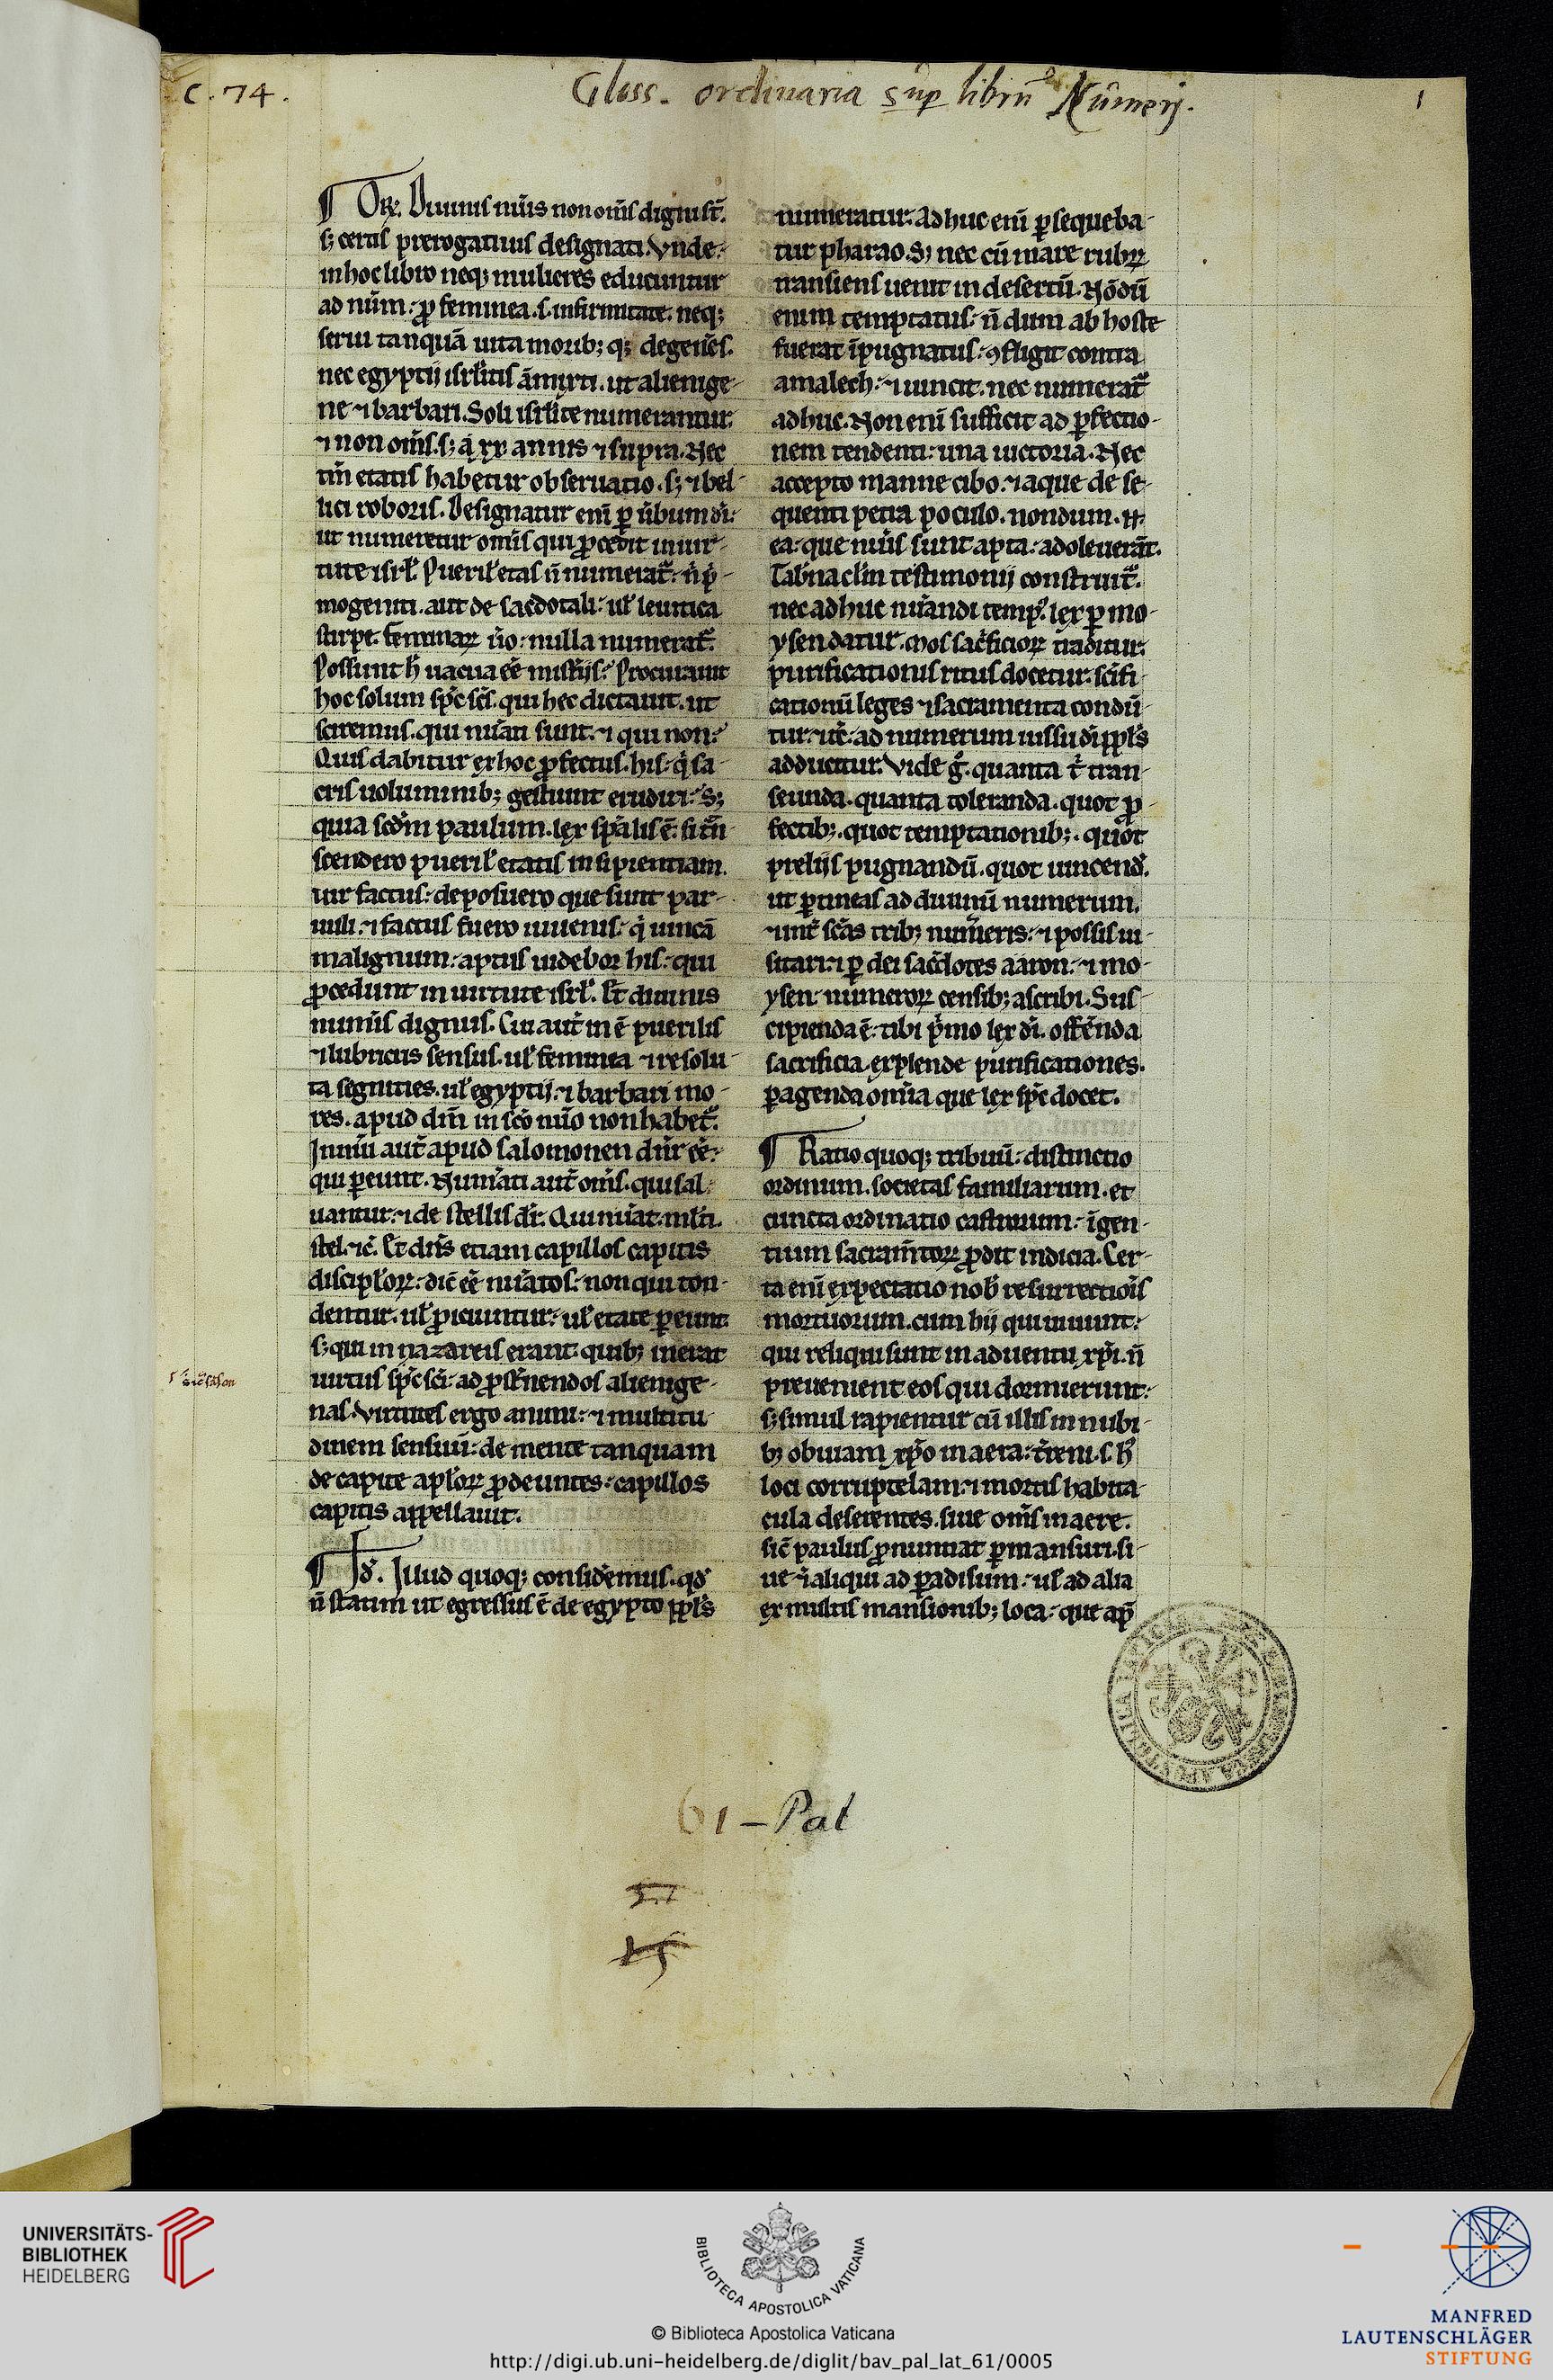 C. 74.
Gloss. ordinaria sup librũ Numerj.
1
¶ Orꝫ. Diuinis nũis non om̃s digni st̃.
sꝫ certis prerogatiuis designati. Vnde
in hoc libro neqꝫ mulieres educuntur
ad nũm. ꝓ feminea .s. infirmitate. neqꝫ
serui tanquã uita moribꝫ qꝫ degeñes.
nec egyptij isrl̃itis ãmixti. ut alienige-
ne ⁊ barbari. Soli isrl̃ite numerantur.
⁊ non om̃s. sꝫ a xx annis ⁊ supra. Nec
tm̃ etatis habetur obseruatio. sꝫ ⁊ bel-
lici roboris. Designatur eni ꝑ ũbum di.
ut numeretur om̃is qui ꝓcedit in uir-
tute isrl̃. Pueril̃ etas ñ numerat̃. ñ p̃-
mogeniti. aut de sac̃dotali. ul̃ leuitica
stirpe. feminaꝝ ũo. nulla numerat̃.
Possunt h̃ uacua eẽ mist̃ijs. Procurauit
hoc solum sp̃c sc̃s. qui hec dictauit. ut
sciremus. qui nũati sunt. ⁊ qui non.
Quis dabitur ex hoc ꝓfectus. his. q̃ sa-
cris uoluminibꝫ gestiunt erudiri. Sꝫ
quia scd̃m paulum. lex sp̃alis ẽ. si t̃n-
scendero pueril̃ etatis insipientiam.
uir factus. deposuero que sunt par-
uuli. ⁊ factus fuero iuuenis. q̃ uincã
malignum. aptus uidebor his. qui
ꝓcedunt in uirtute isrl̃. Et diuinis
numĩs dignus. Cui aut̃ in ẽ puerilis
⁊ lubricus sensus. ul̃ feminea ⁊ resolu-
ta segnities. ul̃ egyptij. ⁊ barbari mo-
res. apud dm̃ in sc̃o nũo non habet̃.
Innũi aut̃ apud salomonen dñr eẽ.
qui ꝑeunt. Num̃ati aut̃ om̃s. qui sal-
uantur. ⁊ de stellis dr̃. Qui nũat ml̃ti.
stel. ⁊c̃. Et dñs etiam capillos capitis
discipl̃oꝝ. dic̃ eẽ nũatos. non qui ton-
dentur. ul̃ ꝓiciuntur. ul̃ etate ꝑeunt.
sꝫ qui in nazareis erant. quibꝫ inerat
uirtus sp̃c sc̃i. ad ꝓst̃nendos alienige-
nas. Virtutes ergo animi. ⁊ multitu-
dinem sensuũ. de mente tanquam
de capite apl̃oꝝ ꝓdeuntes. capillos
capitis appellauit.
¶ Id̃. Illud quoqꝫ considẽmus. qd̃
ñ statim ut egressus ẽ de egypto ppl̃s
numeratur. Adhuc eni ꝑsequeba-
tur pharao. Sꝫ nec cũ mare rubꝝ
transiens uenit in desertũ. Nõdũ
enim temptatus. ñ dum ab hoste
fuerat ĩpugnatus. ꝯfligit contra
amalech. ⁊ uincit. nec numerat̃
adhuc. Non eni sufficit ad ꝑfectio-
nem tendenti. una uictoria. Nec
accepto manne cibo. ⁊ aque de se-
quenti petra poculo. nondum
ea. que nũis sunt apta. adoleuerãt.
Tab̃nacl̃m testimonij construit̃.
nec adhuc nũandi temp᷒. lex ꝑ mo-
ysen datur. Mos sac̃ficioꝝ traditur.
purificationis ritus docetur. sc̃ifi-
cationũ leges ⁊ sacramenta condũ-
tur. ad numerum iussu di ppl̃s
adducitur. Vide g̊. quanta t̃ tran-
seunda. quanta toleranda. quot ꝓ-
fectibꝫ. quot temptationibꝫ. quot
prelijs pugnandũ. quot uincend̃.
ut ꝑtineas ad diuinũ numerum.
⁊ int̃ sc̃as tribꝫ num̃eris. ⁊ possis ui-
sitari. ⁊ ꝑ dei sac̃dotes aaron. ⁊ mo-
ysen numeroꝝ censibꝫ ascribi. Sus-
cipienda ẽ. tibi p̃mo lex di. offẽnda
sacrificia. explende purificationes.
ꝑagenda om̃ia que lex sp̃c docet.
¶ Ratio quoqꝫ tribuũ. distinctio
ordinum. societas familiarum. et
cuncta ordinatio castrorum. ĩgen-
tium sacram̃toꝝ ꝓdit indicia. Cer-
ta eni expectatio nob̃ resurrectiõis
mortuorum. cum hij qui uiuunt.
qui reliqui sunt in aduentu xp̃i. ñ
preuenient eos qui dormierunt.
sꝫ simul rapientur cũ illis in nubi-
bꝫ obuiam xp̃o in aera. t̃reni .s. h̃
loci corruptelam. ⁊ mortis habita-
cula deserentes. siue om̃s in aere.
sic̃ paulus ꝓnuntiat ꝑmansuri. si-
ue ⁊ aliqui ad ꝑadisum. ul̃ ad alia
ex multis mansionibꝫ loca. que ap̃
61 - Pal
UNIVERSITÄTS-
BIBLIOTHEK
HEIDELBERG
BIBLIOTECA APOSTOLICA VATICANA
© Biblioteca Apostolica Vaticana
http://digi.ub.uni-heidelberg.de/diglit/bav_pal_lat_61/0005
MANFRED
LAUTENSCHLÄGER
STIFTUNG